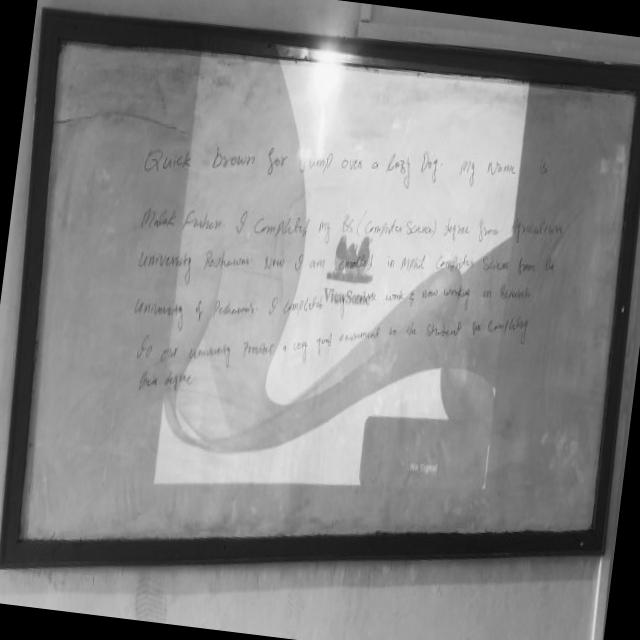 Quick brown fox jump over a Lazy Dog. My Name is
I Completed My Bs (Computer Science) degree from Agriculture
University Peshawar. Now I am enrolled in Computer Science from the
University of Peshawar. I completed work & now working on Research
So our university Provide a very good environment to the Student for Completing
their degree
ViewSonic